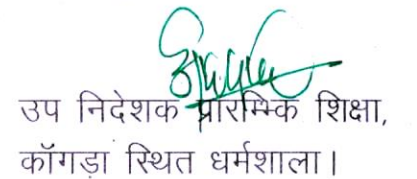 उप निदेशक प्रारम्भिक शिक्षा,
कॉंगड़ा स्थित धर्मशाला।